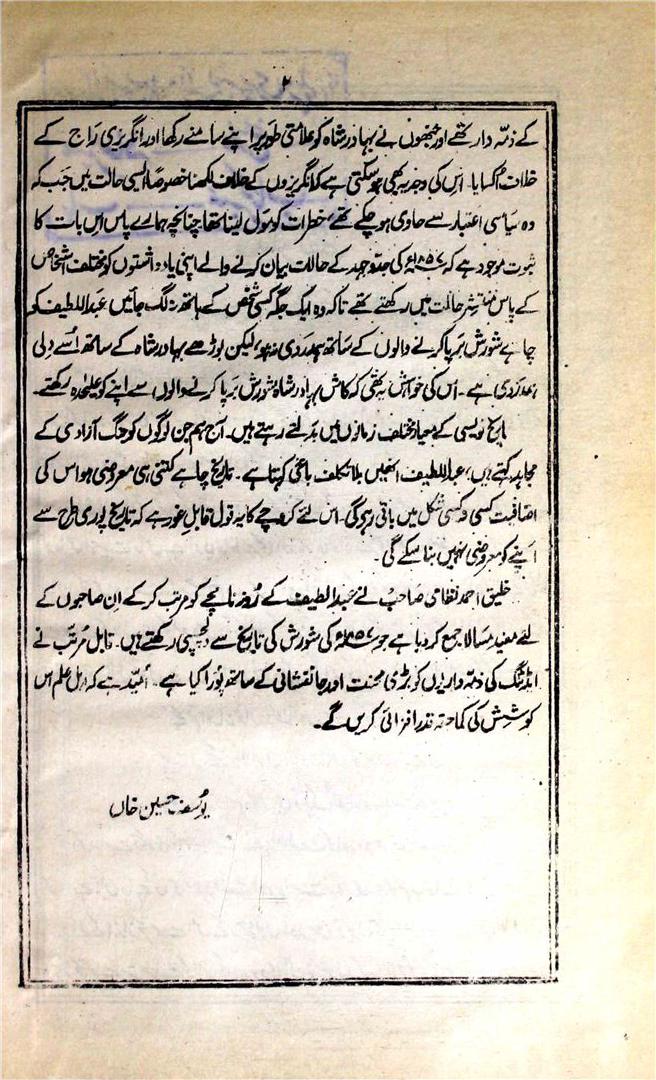 ۲
کے ذمہ دار تھے اور جنھوں نے بہادر شاہ کو علامتی طور پر اپنے سامنے رکھا اور انگریزی راج کے
خلاف اکسایا۔ اس کی وجہ یہ بھی ہو سکتی ہے کہ انگریزوں کے خلاف لکھنا خصوصاً ایسی حالت میں جب کہ
وہ سیاسی اعتبار سے حاوی ہو چکے تھے، خطرات کو مول لینا تھا چنانچہ ہمارے پاس اس بات کا
ثبوت موجود ہے کہ ۱۸۵۷ء کی جدوجہد کے حالات بیان کرنے والے اپنی یادداشتوں کو مختلف اشخاص
کے پاس منتشر حالت میں رکھتے تھے تاکہ وہ ایک جگہ کسی شخص کے ہاتھ نہ لگ جائیں عبداللطیف کو
چاہے شورش برپا کرنے والوں کے ساتھ ہمدردی نہ ہو، لیکن بوڑھے بہادر شاہ کے ساتھ اُسے دلی
ہمدردی ہے۔ اُس کی خواہش یہ تھی کہ کاش بہادر شاہ شورش برپا کرنے والوں سے اپنے کو علیحدہ رکھتے۔
تاریخ نویسی کے معیار مختلف زمانوں میں بدلتے رہتے ہیں۔ آج ہم جن لوگوں کو جنگ آزادی کے
مجاہد کہتے ہیں، عبداللطیف انھیں بلا تکلف باغی کہتا ہے۔ تاریخ چاہے کتنی ہی معروضی ہو اس کی
اضافیت کسی نہ کسی شکل میں باقی رہے گی۔ اس لئے کروچے کا یہ قول قابل غور ہے کہ تاریخ پوری طرح سے
اپنے کو معروضی نہیں بنا سکے گی۔
خلیق احمد نظامی صاحب نے عبداللطیف کے روزنامچے کو مرتب کرکے ان صاحبوں کے
لئے مفید مسالا جمع کر دیا ہے جو ۱۸۵۷ء کی شورش کی تاریخ سے دلچسپی رکھتے ہیں۔ قابل مرتّب نے
اڈٹنگ کی ذمہ داریوں کو بڑی محنت اور جانفشانی کے ساتھ پورا کیا ہے۔ اُمید ہے کہ اہل علم اس
کوشش کی کماحقہ قدر افزائی کریں گے۔
یوسف حسین خاں